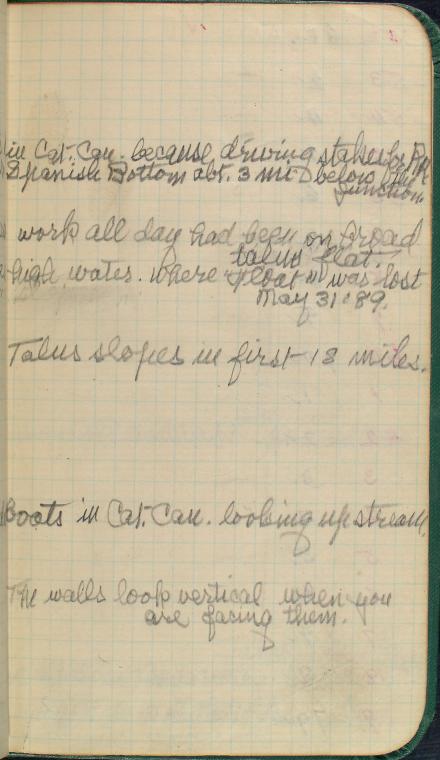 in Cat. Can. because driving stakes for RR
Spanish Bottom abt. 3 mi below the
junction
work all day had been on broad
talus flat.
high water. where float was lost
May 31-89.
Talus slopes in first 18 miles.
Boats in Cat. Can. looking up stream,
The walls look vertical when you
are facing them.